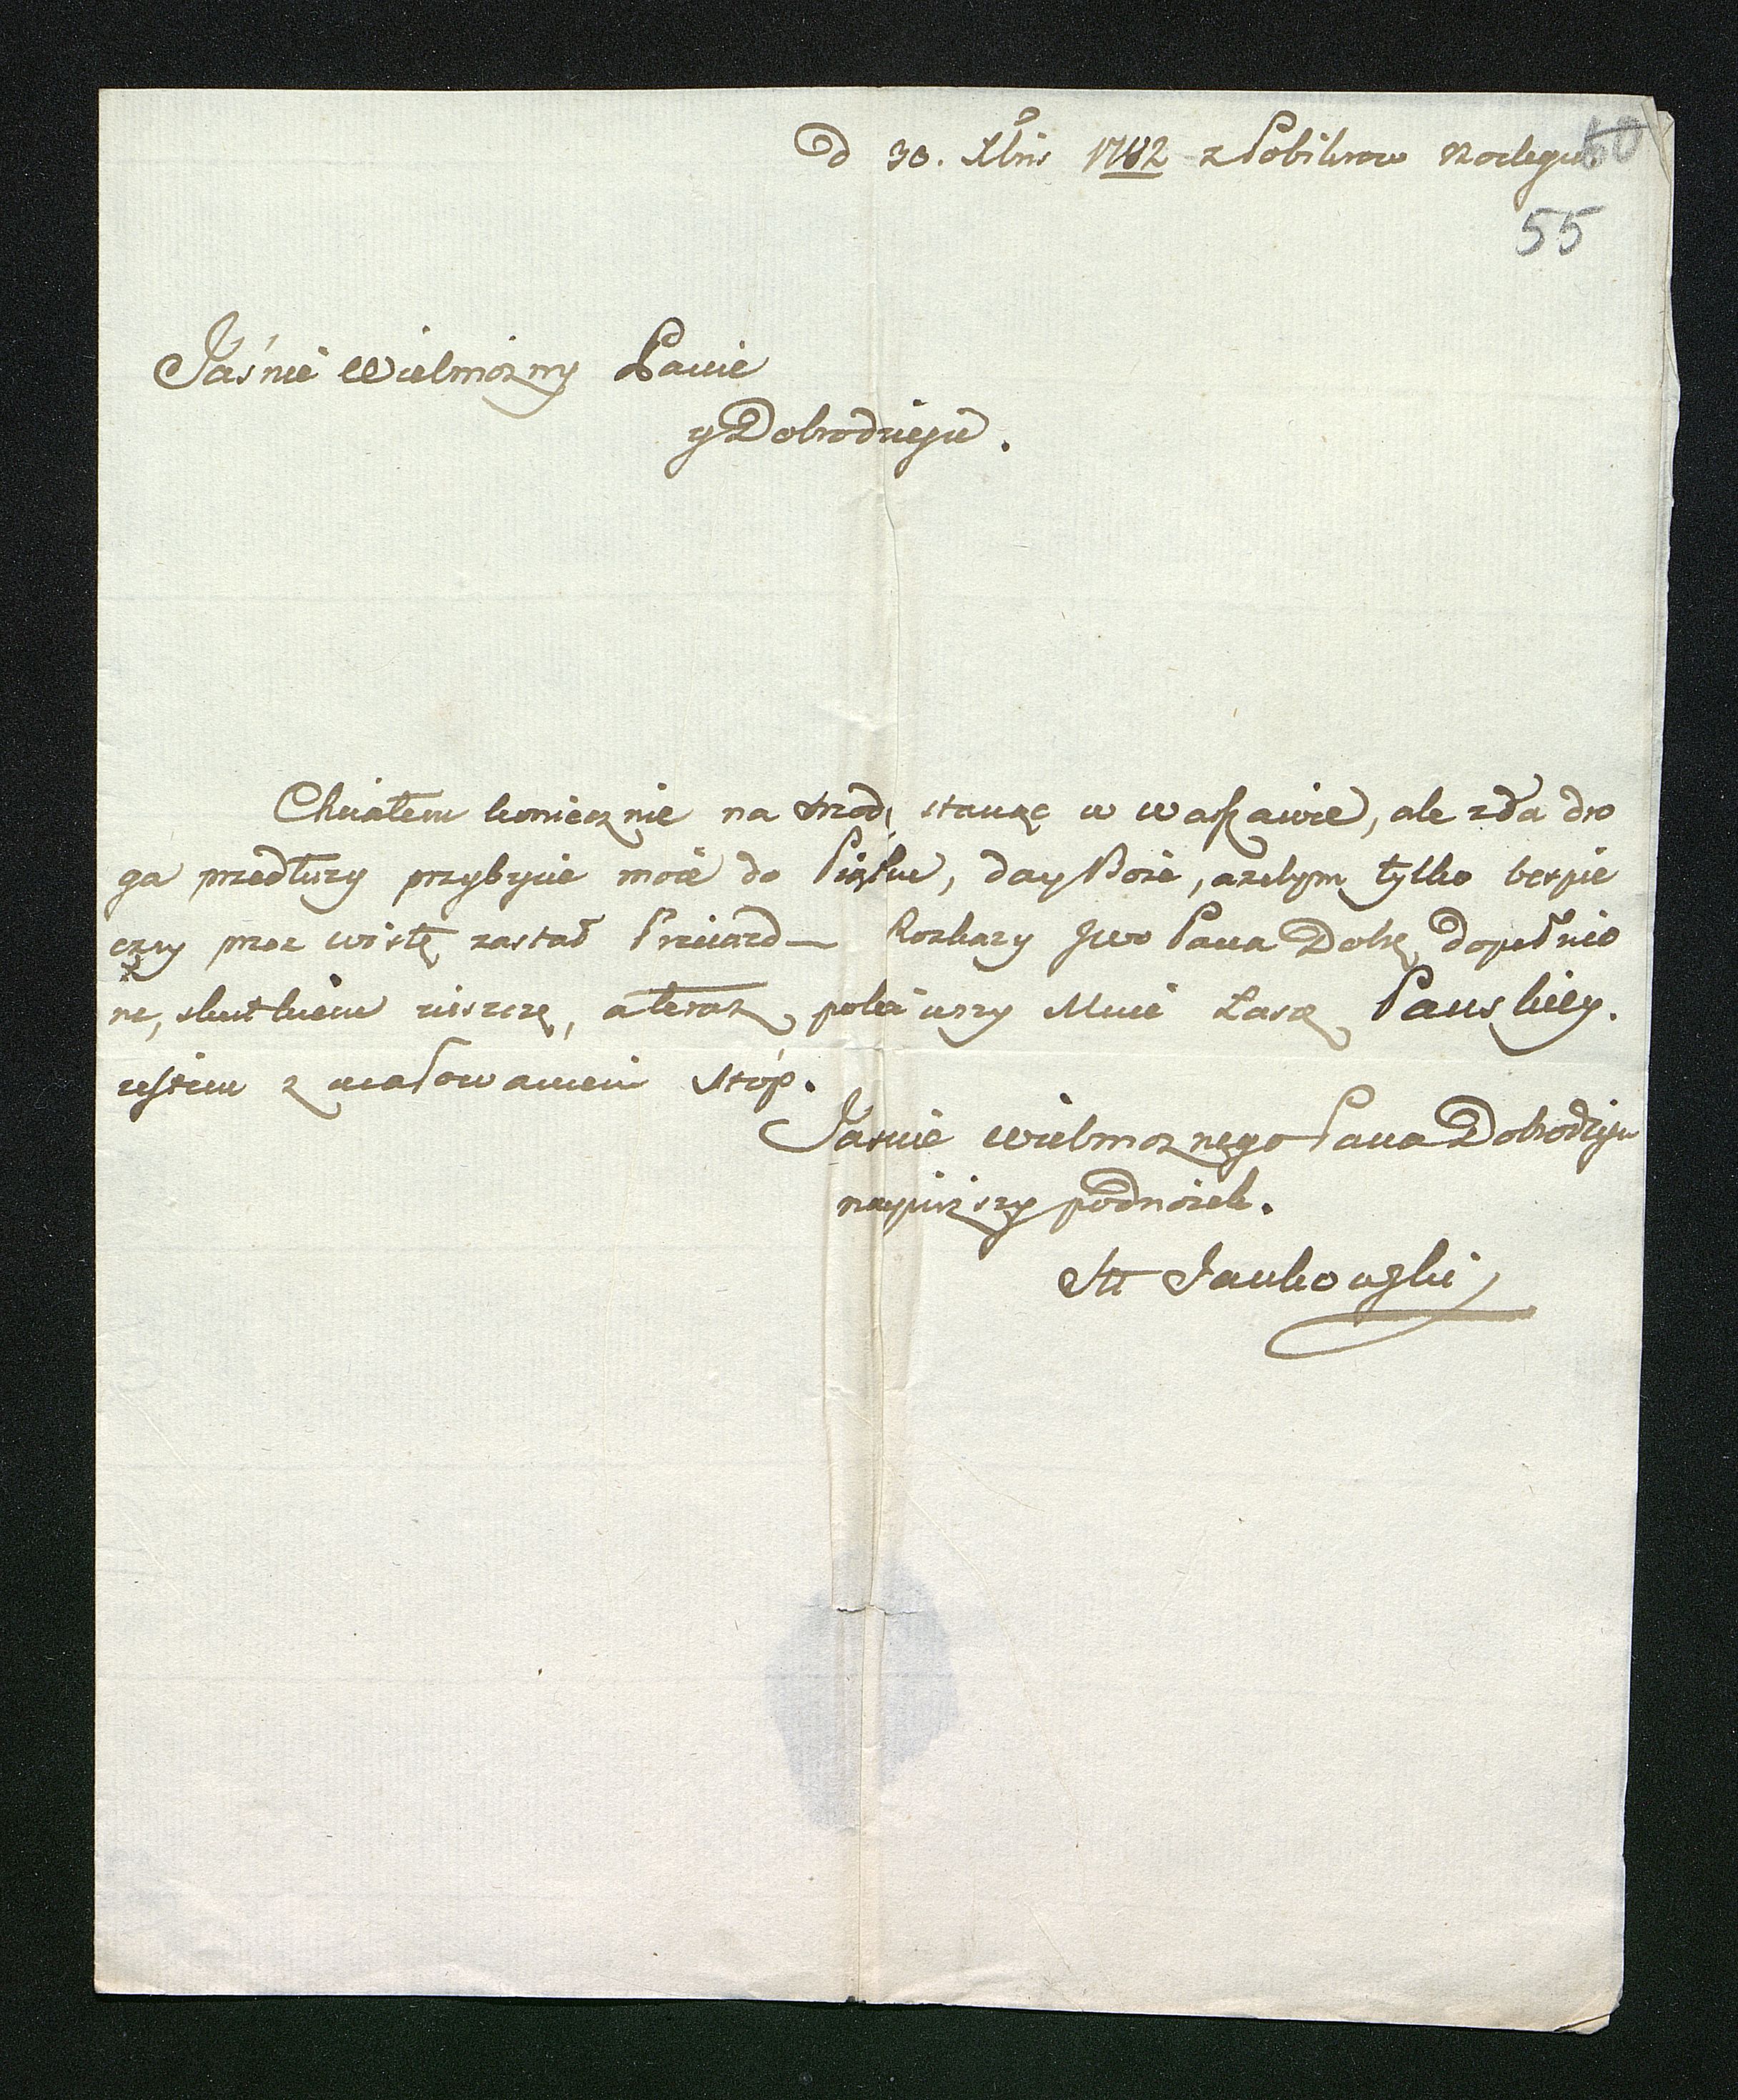 D 30. Xbris 1782 z Pobikrow Noclegu
60
55
Jaśnie Wielmozny Panie
y Dobrodzieju.
Chciałem koniecznie na srzodę stanąc w Warszawie, ale zła dro
ga przedłuzy przybycie moie do Piątku, day Boże, azebym tylko bespie
czny przez wisłę zastał Przeiazd — Rozkazy Jwo Pana Dobr. dopełnio
ne, skutkiem ziszczę, a teraz poleciwszy Mnie Łasce Panskiey.
iestem z ucałowaniem stóp.
Jasnie Wielmoznego Pana Dobrodzieja
nayniższy podnóżek.
St Jankowski